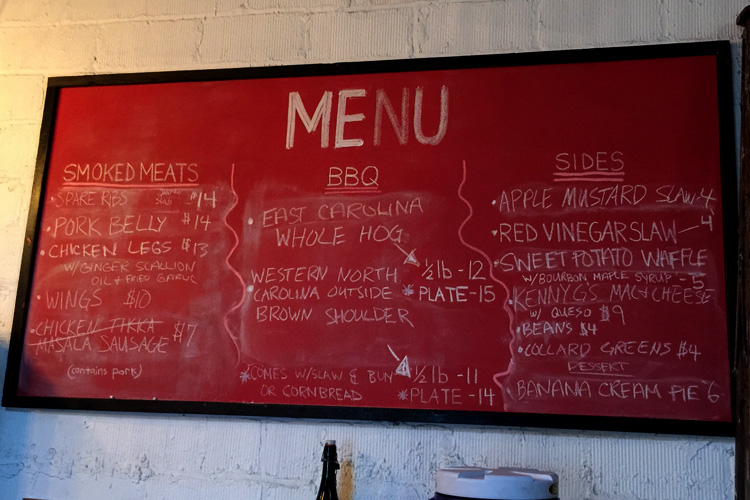 MENU
SMOKED MEATS
• SPARE RIBS $14
• PORK BELLY $14
• CHICKEN LEGS $13
W/GINGER SCALLION
OIL & FRIED GARLIC
• WINGS $10
• CHICKEN TIKKA $17
MASALA SAUSAGE
(contains pork)
BBQ
• EAST CAROLINA
WHOLE HOG
½ lb - 12
* PLATE - 15
WESTERN NORTH
CAROLINA OUTSIDE
BROWN SHOULDER
½ lb - 11
* PLATE - 14
* COMES W/SLAW & BUN
OR CORNBREAD
SIDES
• APPLE MUSTARD SLAW 4
• RED VINEGAR SLAW - 4
• SWEET POTATO WAFFLE
W/BOURBON MAPLE SYRUP - 5
• KENNYG'S MAC & CHEESE
W/ QUESO $9
• BEANS $4
• COLLARD GREENS $4
DESSERT
BANANA CREAM PIE 6